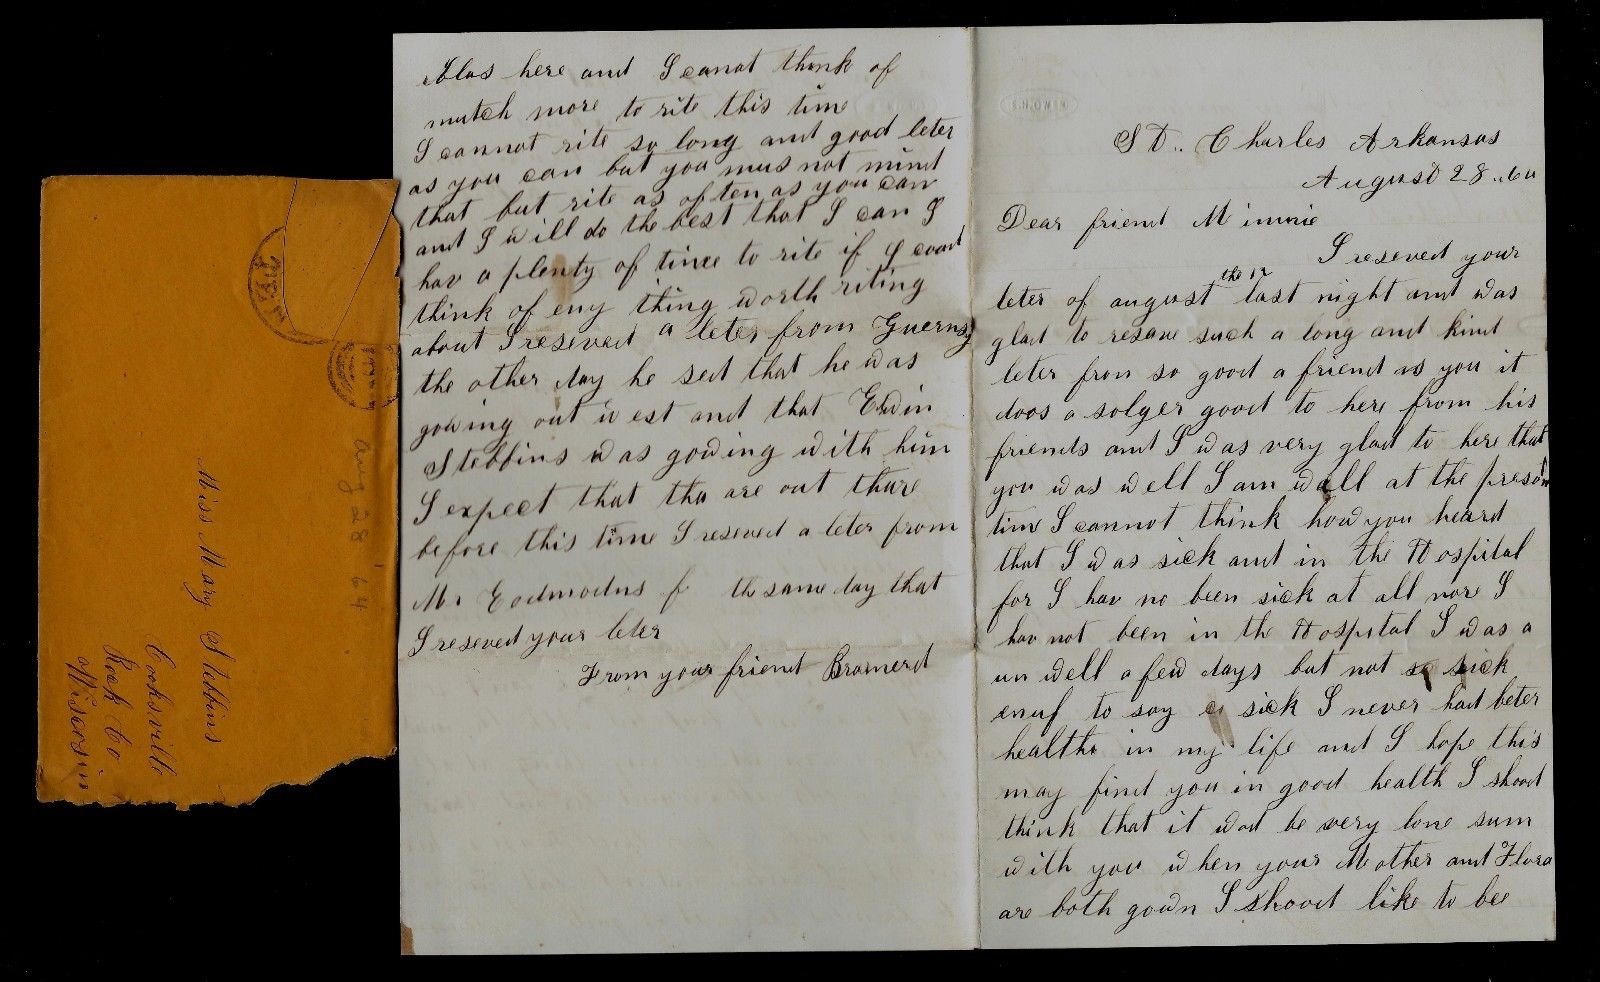 St. Charles Arkansas
August 28.. 64
Dear friend Minnie
I reseved your
leter of august the 12 last night and was
glad to resave such a long and kind
leter from so good a friend as you it
doos a solger good to here from his
friends and I was very glad to here that
you was well I am well at the present
time I cannot think how you heard
that I was sick and in the Hospital
for I hav no been sick at all nore I
hav not been in th Hospital I was a
un well a few days but not so sick
enuf to say sick I never had beter
healths in my life and I hope this
may find you in good health I shood
think that it wod be very lone sum
with you when your Mother and Flora
are both gown I shood like to bee
here and I canot think of
mutch more to rite this time
I cannot rite so long and good leter
as you can but you mus not mind
that but rite as often as you can
and I will do the best that I can I
hav a plenty of time to rite if I cood
think of eny thing worth riting
about I reseved a leter from Guernsy
the other day he sed that he was
gowing out west and that Edwin
Stebbins was gowing with him
I expect that tha are out thare
before this time I reseved a leter from
Mr Eodmodns th same day that
I reseved your leter
From your friend
Miss Mary Stebbins
Cooksvill
Rock Co
Wisconsin
Aug 28 '64
S.H.OWEN